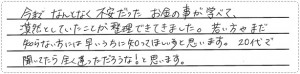 今まで なんとなく 不安だった お金の事が学べて、
漠然としていたことが整理できてきました。若い方やまだ
知らない方には早いうちに知ってほしいなと思います。20代で
聞いてたら全く違っただろうな！と思います。